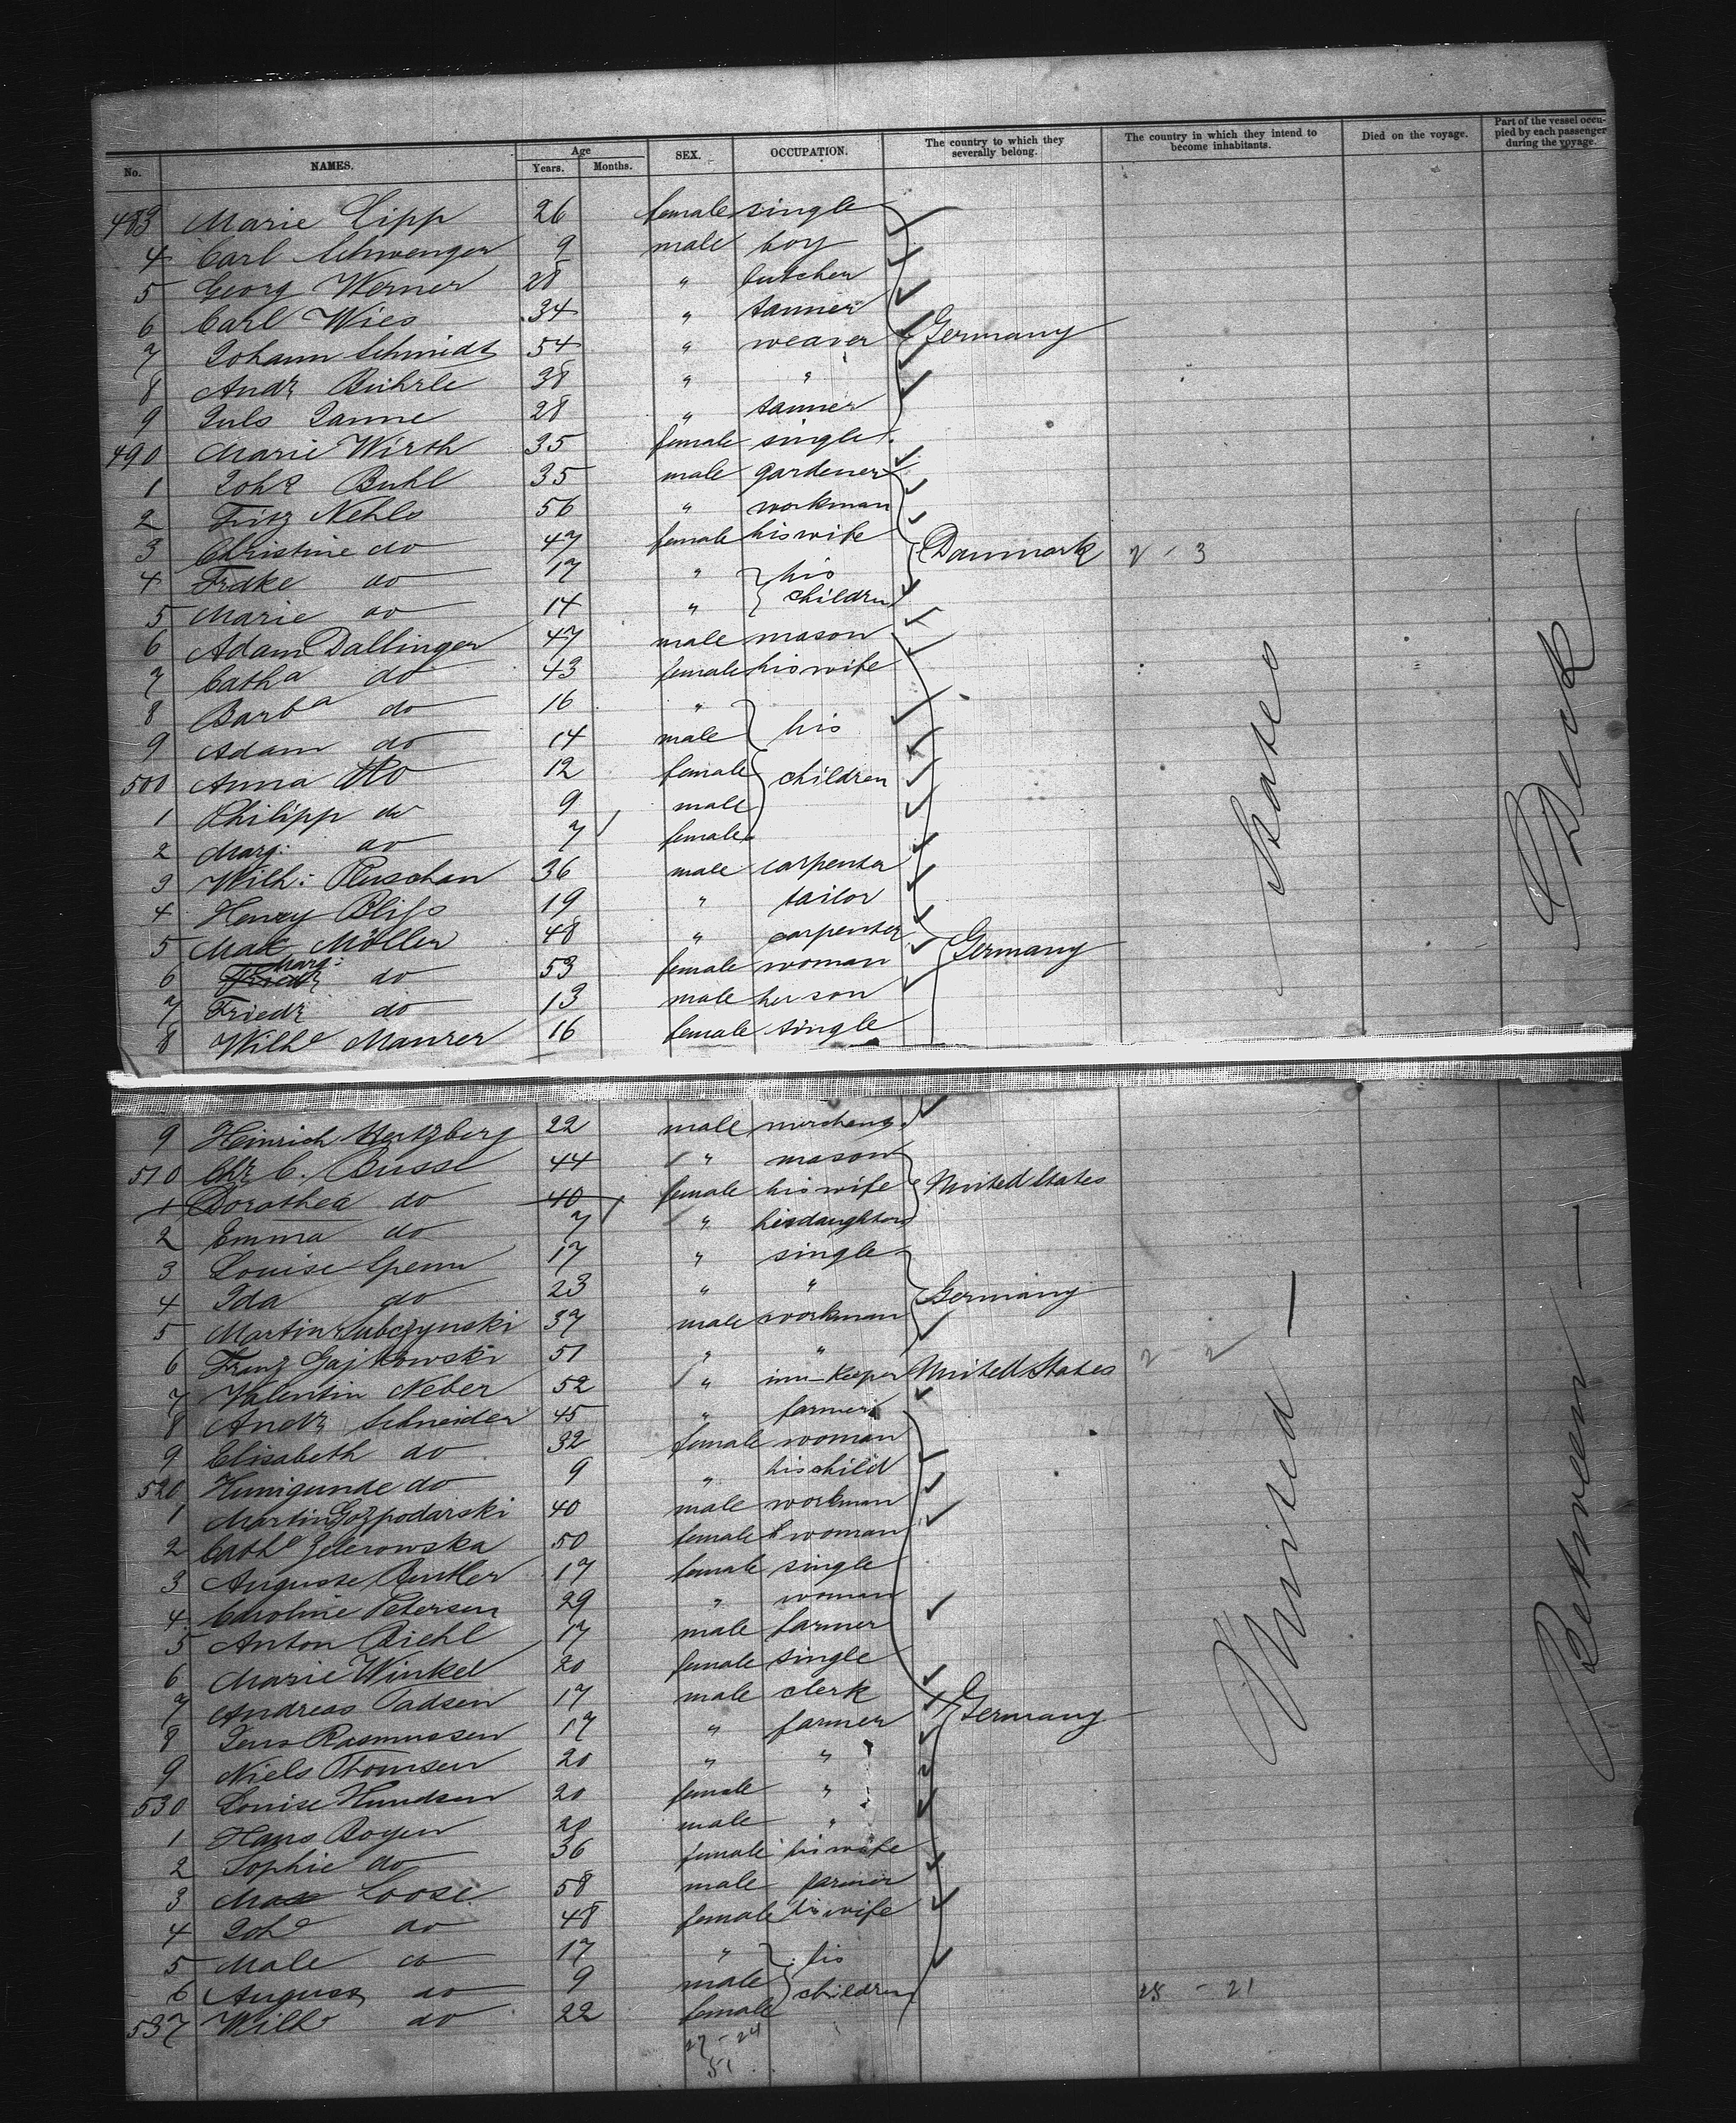 No. NAMES. Age Years. Months. SEX. OCCUPATION. The country to which they severally belong. The country in which they intend to become inhabitants. Died on the voyage. Part of the vessel occupied by each passenger during the voyage.
483 Marie Lipp 26 female single
4 Carl Schwenger 9 male boy
5 Georg Werner 28 " butcher
6 Carl Wies 34 " tanner
7 Johann Schmidt 54 " weaver Germany
8 Andr Bührle 38 " "
9 Juls Janne 28 " tanner
490 Marie Wirth 35 female single
1 Joh Buhl 35 male gardener
2 Fritz Nehls 56 " workman
3 Christine do 47 female his wife Danmark 2 - 3
4 Frdke do 17 " his
5 Marie do 14 " children
6 Adam Dallinger 47 male mason
7 Catha do 43 female his wife
8 Barba do 16 "
9 Adam do 14 male his
500 Anna do 12 female children
1 Philipp do 9 male
2 Marg: do 7 female
3 Wilh: Pluschan 36 male carpenter
4 Henry Bliss 19 " tailor
5 Max Möller 48 " carpenter Germany
6 Marg: do 53 female woman
7 Friedr do 13 male her son
8 Wilhe Maurer 16 female single
9 Heinrich Hertzberg 22 male merchant
510 Chr C. Busse 44 " mason
1 Dorothea do 40 female his wife United States
2 Emma do 7 " his daughter
3 Louise Spenn 17 " single
4 Ida do 23 " " Germany
5 Martin Lubczynski 37 male workman
6 Franz Gajkowski 51 " " 2 2
7 Valentin Neber 52 " inn-keeper United States
8 Andr Schneider 45 " farmer
9 Elisabeth do 32 female woman
520 Kunigunde do 9 " his child
1 Martin Gozpodarski 40 male workman
2 Cathe Zelerowska 50 female woman
3 Auguste Beutler 17 female single
4 Caroline Petersen 29 " woman
5 Anton Diehl 17 male farmer
6 Marie Winkel 20 female single
7 Andreas Tadsen 17 male clerk Germany
8 Jens Rasmussen 17 " farmer
9 Niels Thomsen 20 " "
530 Louise Knudsen 20 female "
1 Hans Boyen 20 male "
2 Sophie do 36 female his wife
3 Max Loose 58 male farmer
4 Johe do 48 female his wife
5 Male do 17 " his
6 August do 9 male children 28 - 21
537 Wilhe do 22 female
27 - 24
51
United States
Between Deck